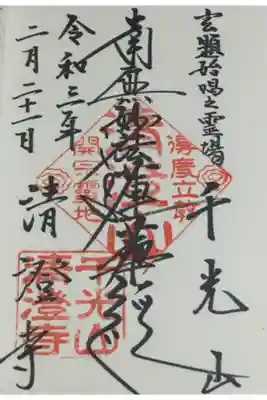 玄題始唱之霊場
千光山
南無妙法蓮華経
令和三年
二月二十一日
清澄寺
立教
開宗霊地
千光山
清澄寺